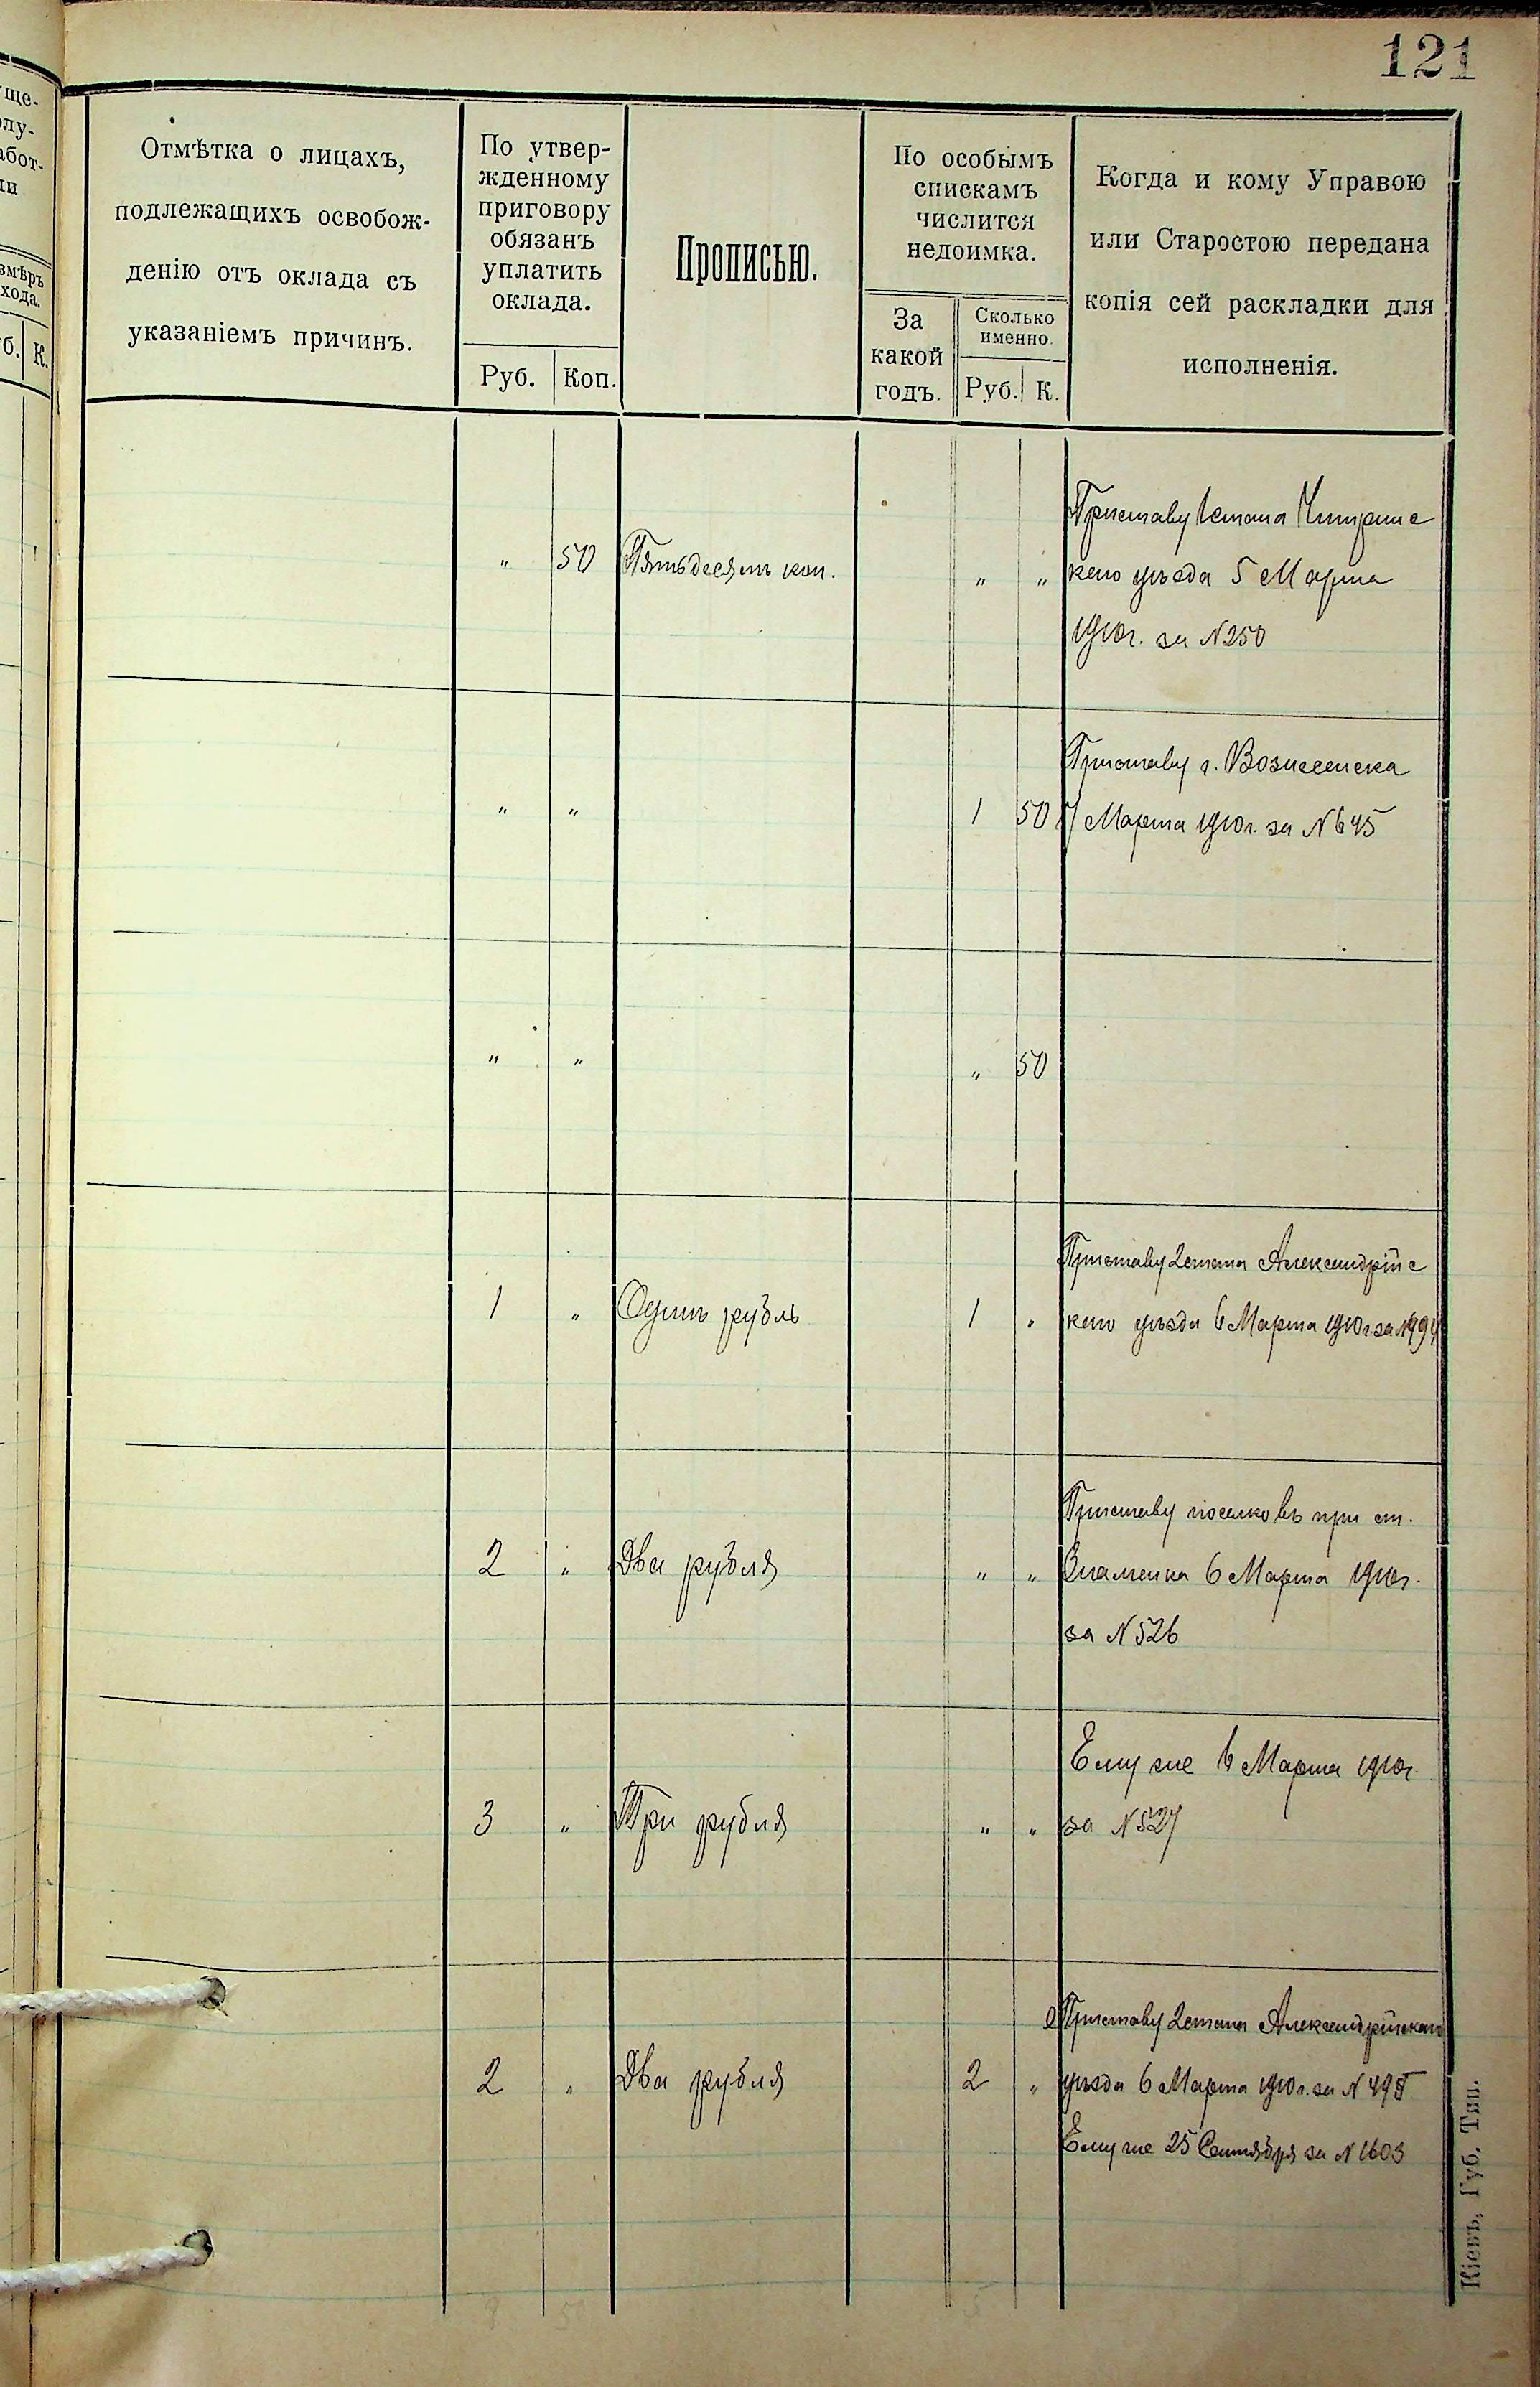 121
Отмѣтка о лицахъ,
подлежащихъ освобож-
денію отъ оклада съ
указаніемъ причинъ.
По утвер-
жденному
приговору
обязанъ
уплатить
оклада.
Руб. Коп.
Прописью.
По особымъ
спискамъ
числится
недоимка.
За
какой
годъ.
Сколько
именно.
Руб. К.
Когда и кому Управою
или Старостою передана
копія сей раскладки для
исполненія.
Приставу 1 стана
" 50 Пятьдесятъ коп. " " кого уѣзда 5 Марта
1910 г. за N 250
Приставу г. Вознесенска
" " 1 50 7 Марта 1910 г. за N 645
" " " 50
Приставу 2 стана Александрійс
1 " Одинъ рубль 1 " каго уѣзда 6 Марта 1910 г. за N
Приставу поселковъ при ст.
2 " Два рубля " " Знаменка 6 Марта 1910 г.
за N 526
Ему же 6 Марта 1910 г.
3 " Три рубля " " за N 527
Приставу 2 стана Александрійскаго
2 " Два рубля 2 " уѣзда 6 Марта 1910 г. за N
Ему же 25 Сентября за N 1603
Кіевъ, Губ. Тип.
ще-
лу-
абот-
ли
змѣръ
хода.
б. К.